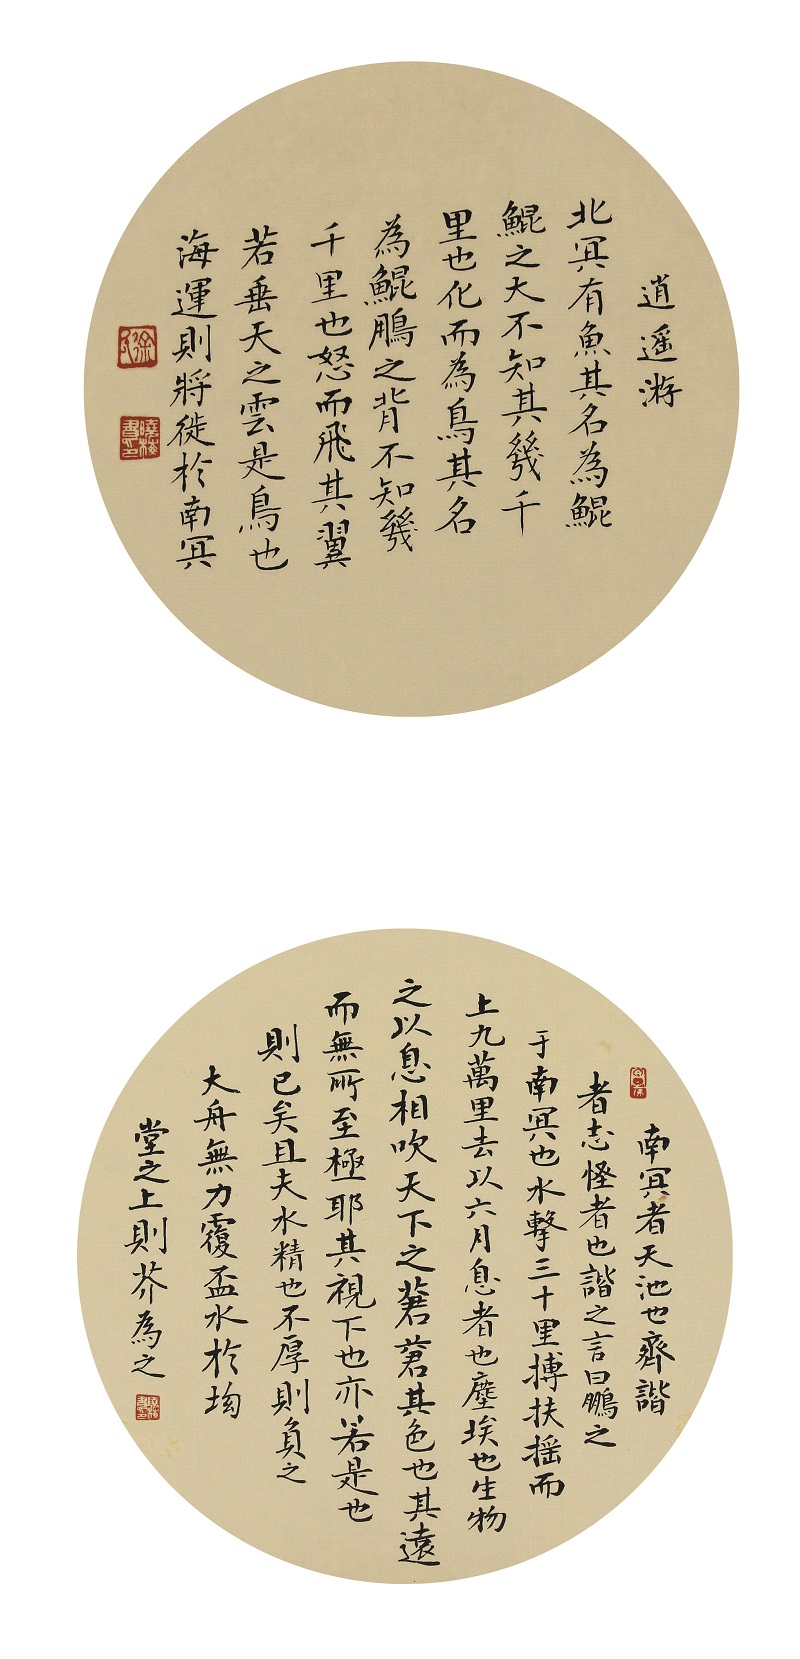 逍遥游
北冥有魚其名為鯤
鯤之大不知其幾千
里也化而為鳥其名
為鯤鵬之背不知幾
千里也怒而飛其翼
若垂天之雲是鳥也
海運則將徙於南冥
徐氏
曉梅書印
南冥者天池也齊諧
者志怪者也諧之言曰鵬之
于南冥也水擊三十里摶扶摇而
上九萬里去以六月息者也塵埃也生物
之以息相吹天下之蒼蒼其色也其遠
而無所至極耶其視下也亦若是也
則已矣且夫水精也不厚則負之
大舟無力覆盃水於坳
堂之上則芥為之